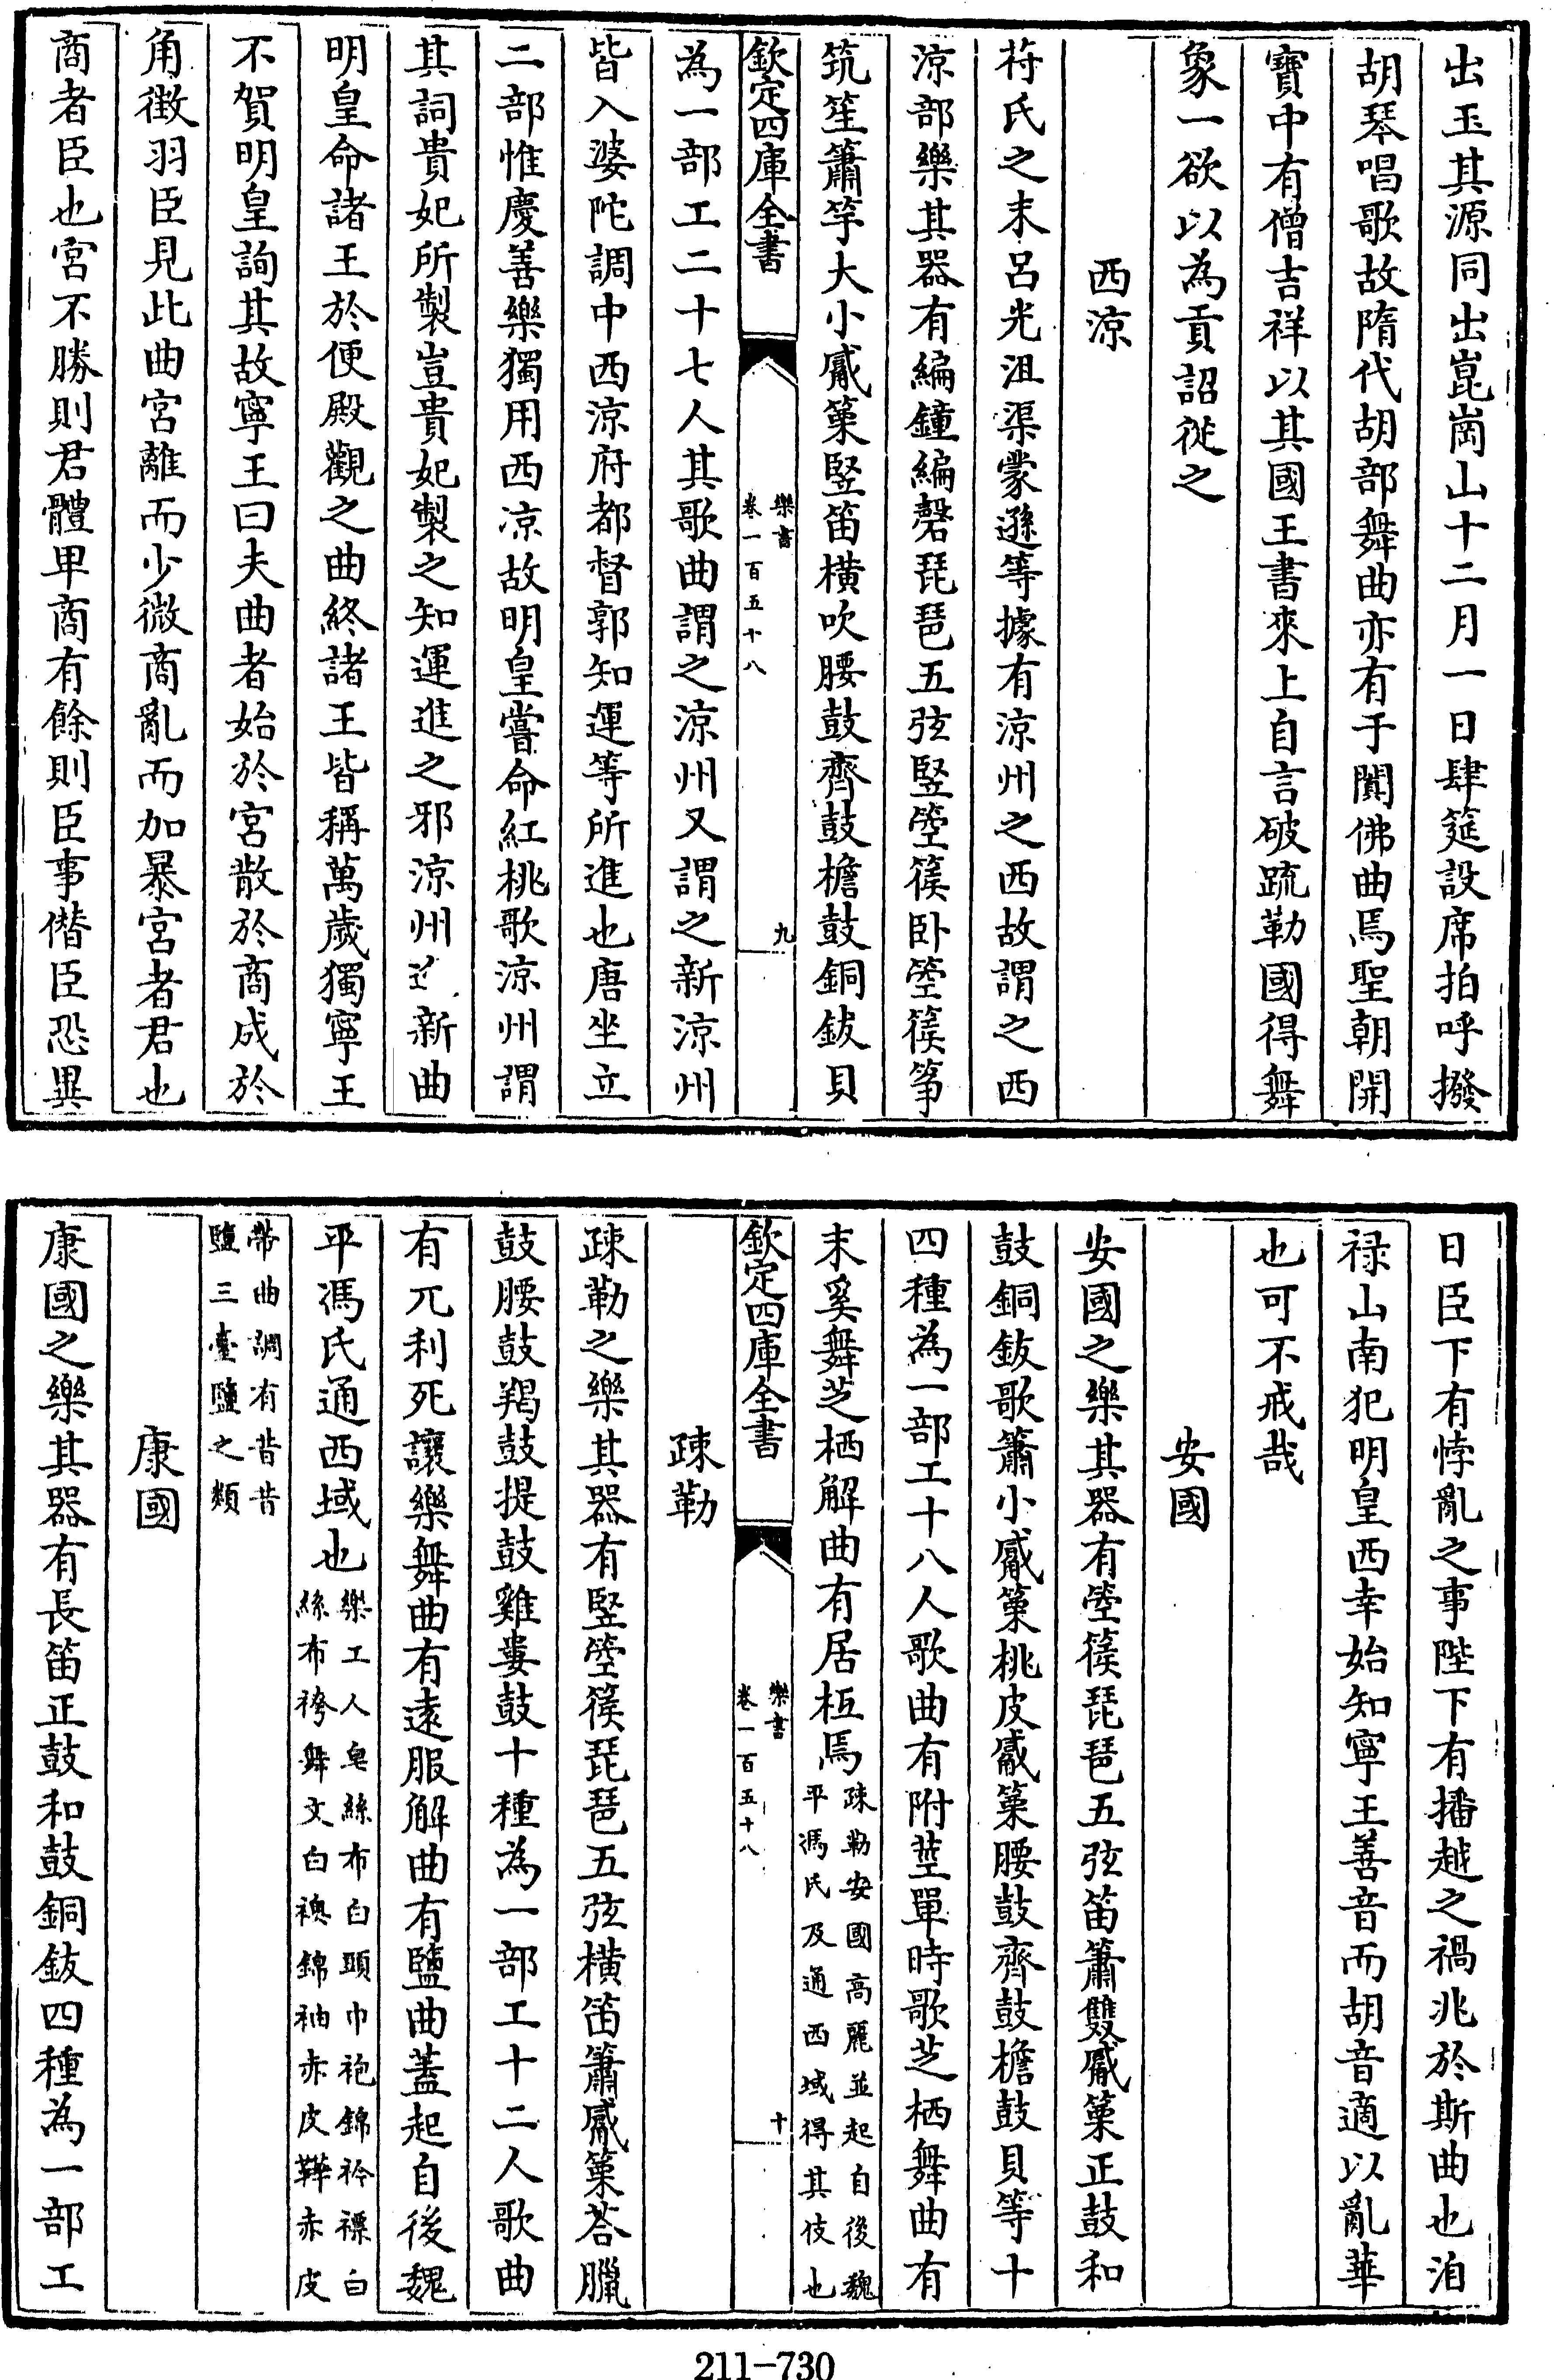 出玉其源同出崑崗山十二月一日肆筵設席拍呼撥
胡琴唱歌故隋代胡部舞曲亦有于闐佛曲焉聖朝開
寶中有僧吉祥以其國王書來上自言破疏勒國得舞
象一欲以為貢詔從之
西涼
苻氏之末呂光沮渠蒙遜等據有涼州之西故謂之西
涼部樂其器有編鐘編磬琵琶五弦竪箜篌卧箜篌箏
筑笙簫竽大小觱篥竪笛橫吹腰鼓齊鼓檐鼓銅鈸貝
欽定四庫全書
樂書
卷一百五十八
九
為一部工二十七人其歌曲謂之涼州又謂之新涼州
皆入婆陀調中西涼府都督郭知運等所進也唐坐立
二部惟慶善樂獨用西凉故明皇嘗命紅桃歌涼州謂
其詞貴妃所製豈貴妃製之知運進之邪涼州新曲
明皇命諸王於便殿觀之曲終諸王皆稱萬歲獨寧王
不賀明皇詢其故寧王曰夫曲者始於宮散於商成於
角徵羽臣見此曲宮離而少微商亂而加暴宮者君也
商者臣也宮不勝則君體卑商有餘則臣事僭臣恐異
日臣下有悖亂之事陛下有播越之禍兆於斯曲也洎
禄山南犯明皇西幸始知寧王善音而胡音適以亂華
也可不戒哉
安國
安國之樂其器有箜篌琵琶五弦笛簫雙觱篥正鼓和
鼓銅鈸歌簫小觱篥桃皮觱篥腰鼓齊鼓檐鼓貝等十
四種為一部工十八人歌曲有附莝單時歌芝栖舞曲有
末奚舞芝栖解曲有居枑焉疎勒安國高麗並起自後魏
平馮氏及通西域得其伎也
欽定四庫全書
樂書
卷一百五十八
十
疎勒
疎勒之樂其器有竪箜篌琵琶五弦橫笛簫觱篥荅臘
鼓腰鼓羯鼓提鼓雞婁鼓十種為一部工十二人歌曲
有兀利死讓樂舞曲有遠服解曲有鹽曲蓋起自後魏
平馮氏通西域也樂工人皂絲布白頭巾袍錦衿褾白
絲布袴舞文白襖錦袖赤皮鞾赤皮
帶曲調有昔昔
鹽三臺鹽之類
康國
康國之樂其器有長笛正鼓和鼓銅鈸四種為一部工
211-730